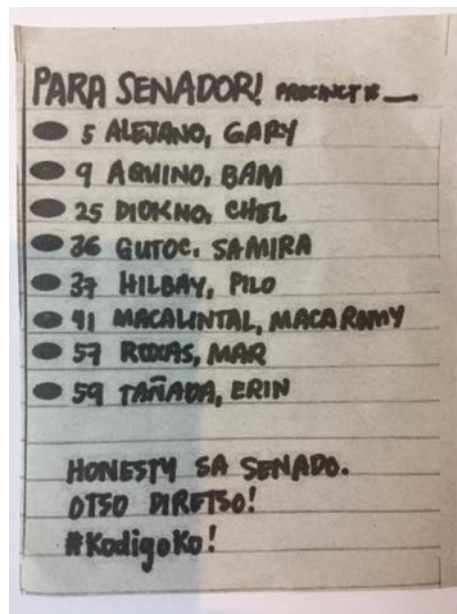 PARA SENADOR! PRECINCT # __
5 ALEJANO, GARY
9 AQUINO, BAM
25 DIOKNO, CHEL
36 GUTOC, SAMIRA
37 HILBAY, PILO
41 MACALINTAL, MACAROMY
57 ROXAS, MAR
59 TAÑADA, ERIN
HONESTY SA SENADO.
OTSO DIRETSO!
#KodigoKo!